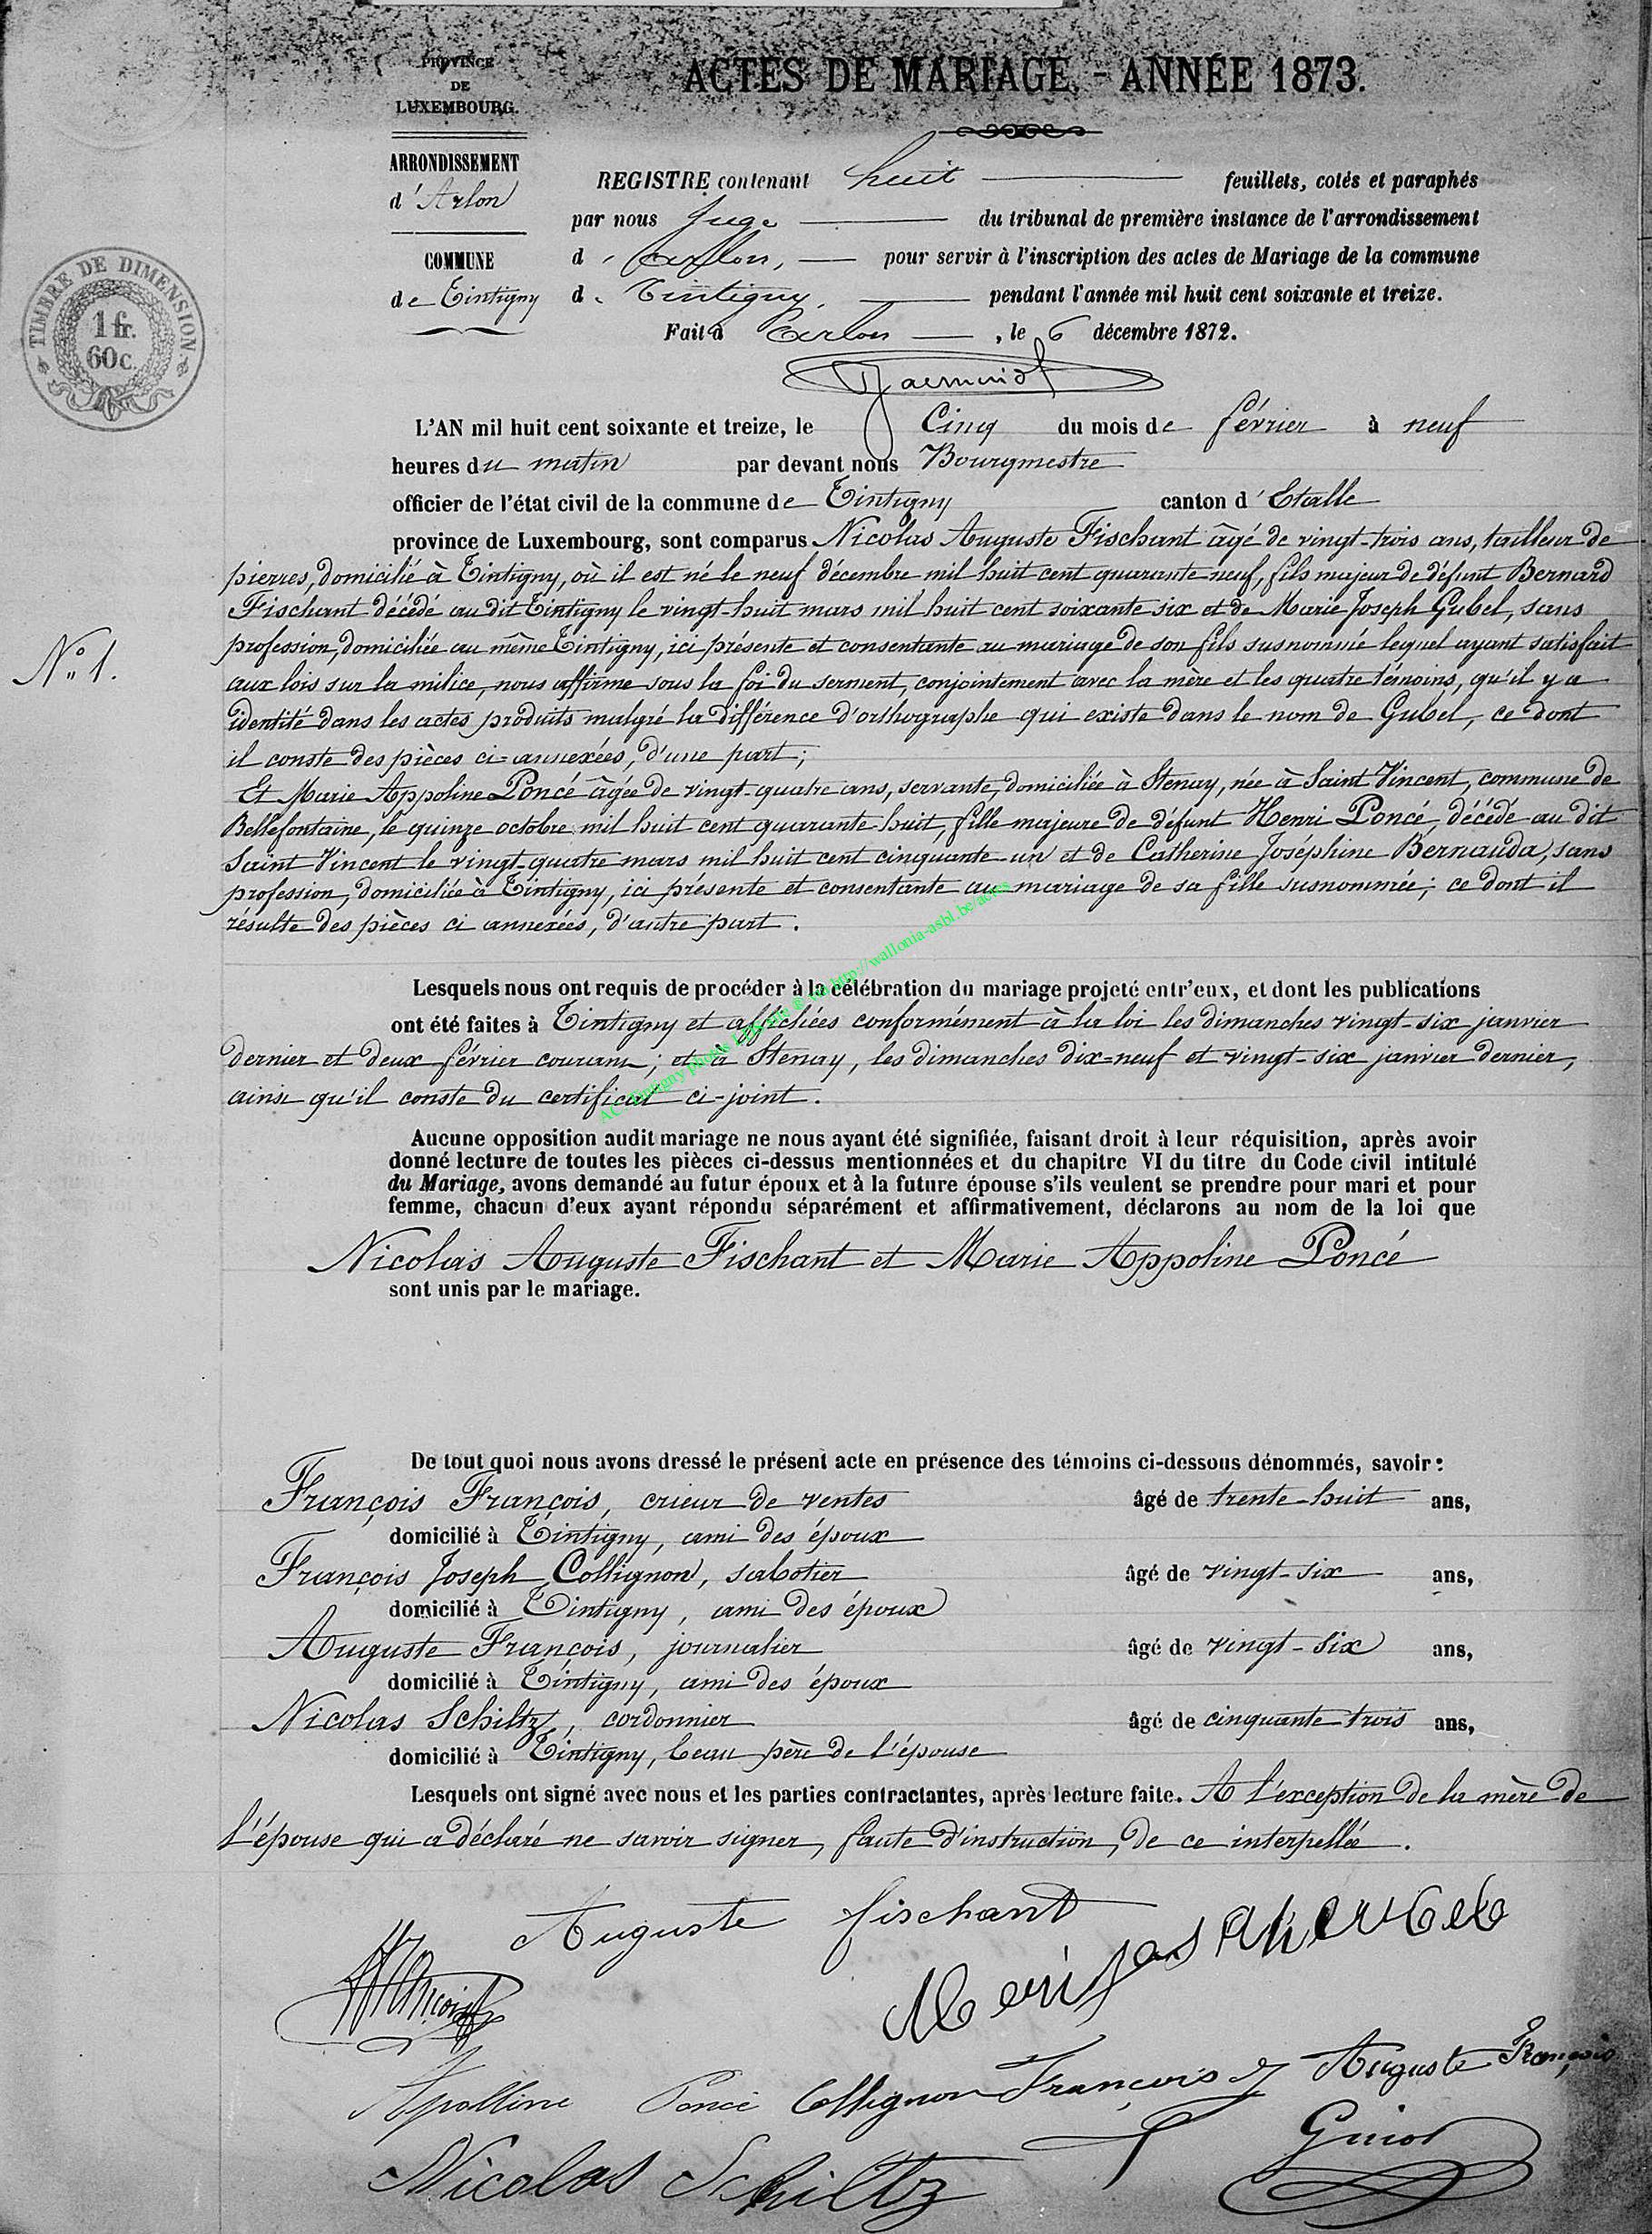 PROVINCE
DE
LUXEMBOURG.
ACTES DE MARIAGE. - ANNÉE 1873.
ARRONDISSEMENT
d'Arlon
COMMUNE
de Tintigny
REGISTRE contenant huit feuillets, cotés et paraphés
par nous Juge du tribunal de première instance de l'arrondissement
d'Arlon, pour servir à l'inscription des actes de Mariage de la commune
de Tintigny, pendant l'année mil huit cent soixante et treize.
Fait à Arlon, le 6 décembre 1872.
TIMBRE DE DIMENSION
1 fr.
60 c.
L'AN mil huit cent soixante et treize, le Cinq du mois de février à neuf
heures du matin par devant nous Bourgmestre
officier de l'état civil de la commune de Tintigny canton d'Etalle
province de Luxembourg, sont comparus Nicolas Auguste Fischant âgé de vingt-trois ans, tailleur de
pierres, domicilié à Tintigny, où il est né le neuf décembre mil huit cent quarante neuf, fils majeur de défunt Bernard
Fischant décédé au dit Tintigny le vingt-huit mars mil huit cent soixante six et de Marie Joseph Gubel, sans
profession, domiciliée au même Tintigny, ici présente et consentante au mariage de son fils susnommé lequel ayant satisfait
N° 1.
aux lois sur la milice, nous affirme sous la foi du serment, conjointement avec la mère et les quatre témoins, qu'il y a
identité dans les actes produits malgré la différence d'orthographe qui existe dans le nom de Gubel, ce dont
il conste des pièces ci-annexées, d'une part;
Et Marie Appoline Poncé âgée de vingt-quatre ans, servante, domiciliée à Stenay, née à Saint Vincent, commune de
Bellefontaine, le quinze octobre mil huit cent quarante-huit, fille majeure de défunt Henri Poncé, décédé au dit
Saint Vincent le vingt-quatre mars mil huit cent cinquante-un et de Catherine Joséphine Bernauda, sans
profession, domiciliée à Tintigny, ici présente et consentante au mariage de sa fille susnommée; ce dont il
résulte des pièces ci annexées, d'autre part.
Lesquels nous ont requis de procéder à la célébration du mariage projeté entr'eux, et dont les publications
ont été faites à Tintigny et affichées conformément à la loi les dimanches vingt-six janvier
dernier et deux février courant; et à Stenay, les dimanches dix-neuf et vingt-six janvier dernier,
ainsi qu'il conste du certificat ci-joint.
http://wallonia-asbl.be/actes
Aucune opposition audit mariage ne nous ayant été signifiée, faisant droit à leur réquisition, après avoir
donné lecture de toutes les pièces ci-dessus mentionnées et du chapitre VI du titre du Code civil intitulé
du Mariage, avons demandé au futur époux et à la future épouse s'ils veulent se prendre pour mari et pour
femme, chacun d'eux ayant répondu séparément et affirmativement, déclarons au nom de la loi que
Nicolas Auguste Fischant et Marie Appoline Poncé
sont unis par le mariage.
De tout quoi nous avons dressé le présent acte en présence des témoins ci-dessous dénommés, savoir:
François François, crieur de ventes âgé de trente-huit ans,
domicilié à Tintigny, ami des époux
François Joseph Collignon, sabotier âgé de vingt-six ans,
domicilié à Tintigny, ami des époux
Auguste François, journalier âgé de vingt-six ans,
domicilié à Tintigny, ami des époux
Nicolas Schiltz, cordonnier âgé de cinquante trois ans,
domicilié à Tintigny, beau père de l'épouse
Lesquels ont signé avec nous et les parties contractantes, après lecture faite. A l'exception de la mère de
l'épouse qui a déclaré ne savoir signer, faute d'instruction, de ce interpellée.
Auguste fischant
Apolline Poncé Collignon François J Auguste François
Nicolas Schiltz